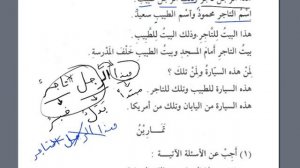 اسْمُ التاجرِ محمودٌ واسْمُ الطبيبِ سعيدٌ.
هذا البيتُ لِلتاجرِ، وذلك البيتُ لِلطَّبيبِ.
بيتُ التاجرِ أمامَ المسجدِ وبيتُ الطبيبِ خَلْفَ المَدْرسةِ.
لِمَنْ هذه السيّارةُ ولِمَنْ تلك ؟
هذه السيارةُ للطبيبِ وتلك للتاجرِ.
هذه السيارةُ من اليابانِ وتلك من أمريكا.
هذا الرجل تاجر
بدل خبر
هذا الرجل
تمارينُ
(١) أَجِبْ عن الأسئلة الآتية: